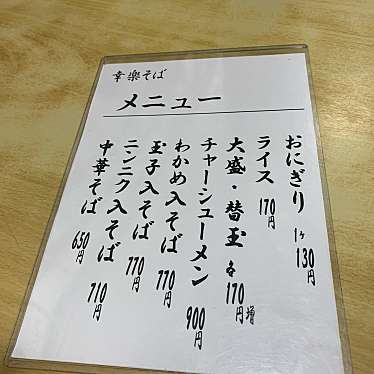 幸楽そば
メニュー
おにぎり 1ヶ 130円
ライス 170円
大盛・替玉 各170円増
チャーシューメン 900円
わかめ入そば 770円
玉子入そば 770円
ニンニク入そば 710円
中華そば 650円